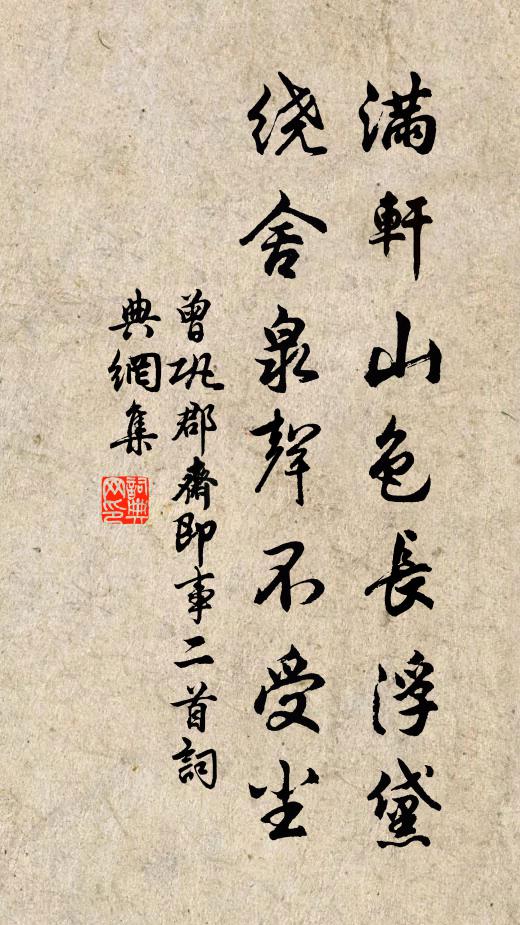 满軒山色長浮黛
绕舍泉聲不受尘
曾巩郡齋即事二首詞
典網集
詞典
网印